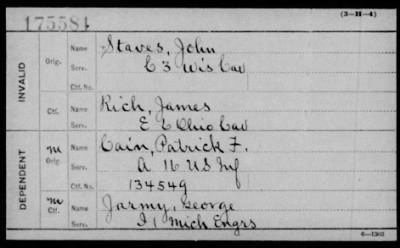 175581
(3-11-4)
INVALID
Orig.
Name
Staves, John
Serv.
C 3 Wis Cav
Ctf. No.
Ctf.
Name
Rich, James
Serv.
E 6 Ohio Cav
DEPENDENT
M
Orig.
Name
Cain, Patrick F.
Serv.
A 16 US Inf
Ctf. No.
134549
M
Ctf.
Name
Jarmy, George
Serv.
I 1 Mich Engrs